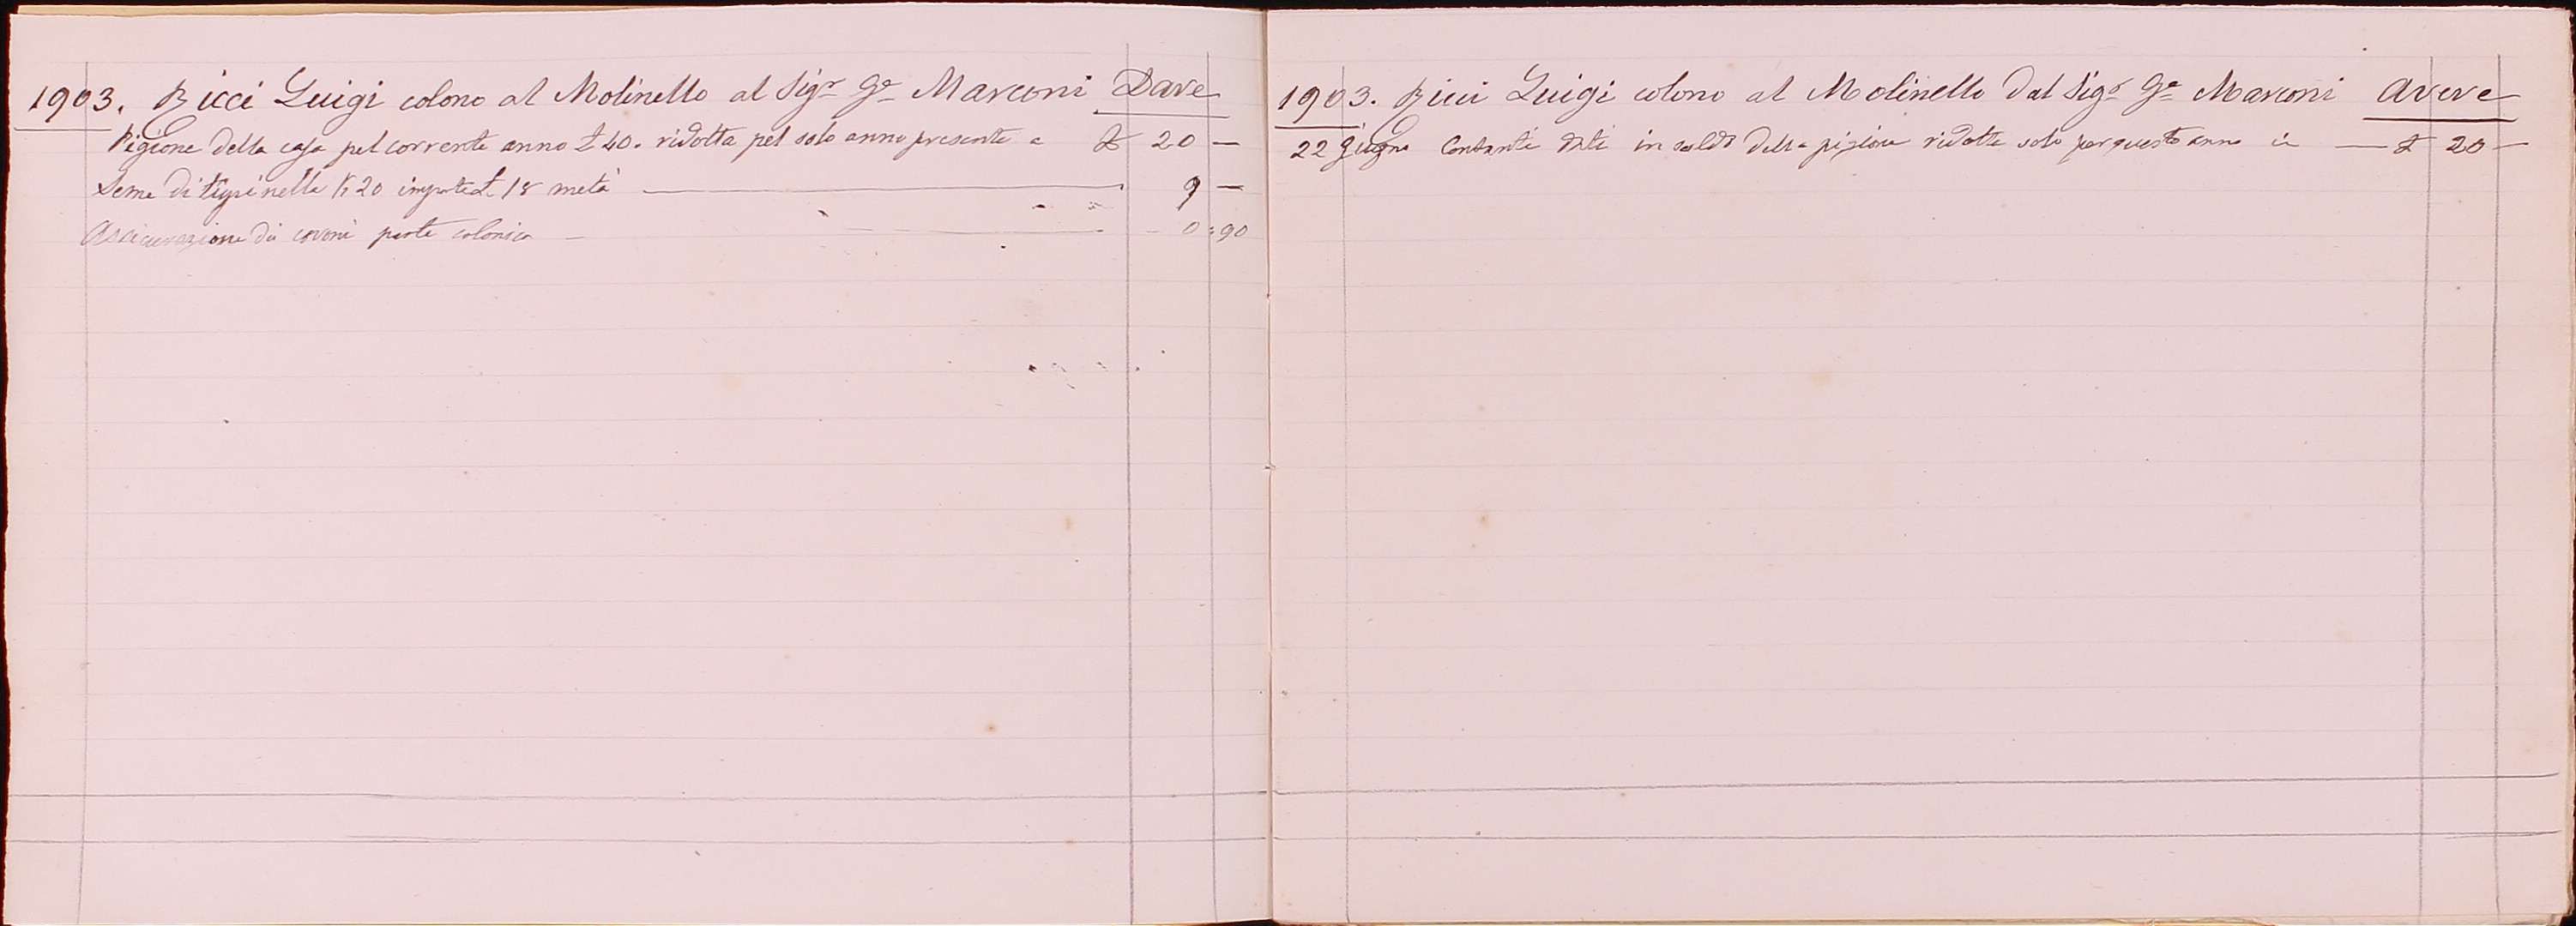 1903. Ricci Luigi colono al Molinello al Sigr Ge Marconi Dare
Pigione della casa pel corrente anno £ 40. ridotta pel solo anno presente a £ 20 —
Seme di tigninella K 20 importe £ 18 metà — 9 —
Assicurazione di covoni parte colonica — 0:90
1903. Ricci Luigi colono al Molinello Dal Sigr Ge Marconi Avere
22 Giugno Contanti dati in saldo della pigione ridotta solo per questo anno in — £ 20 —